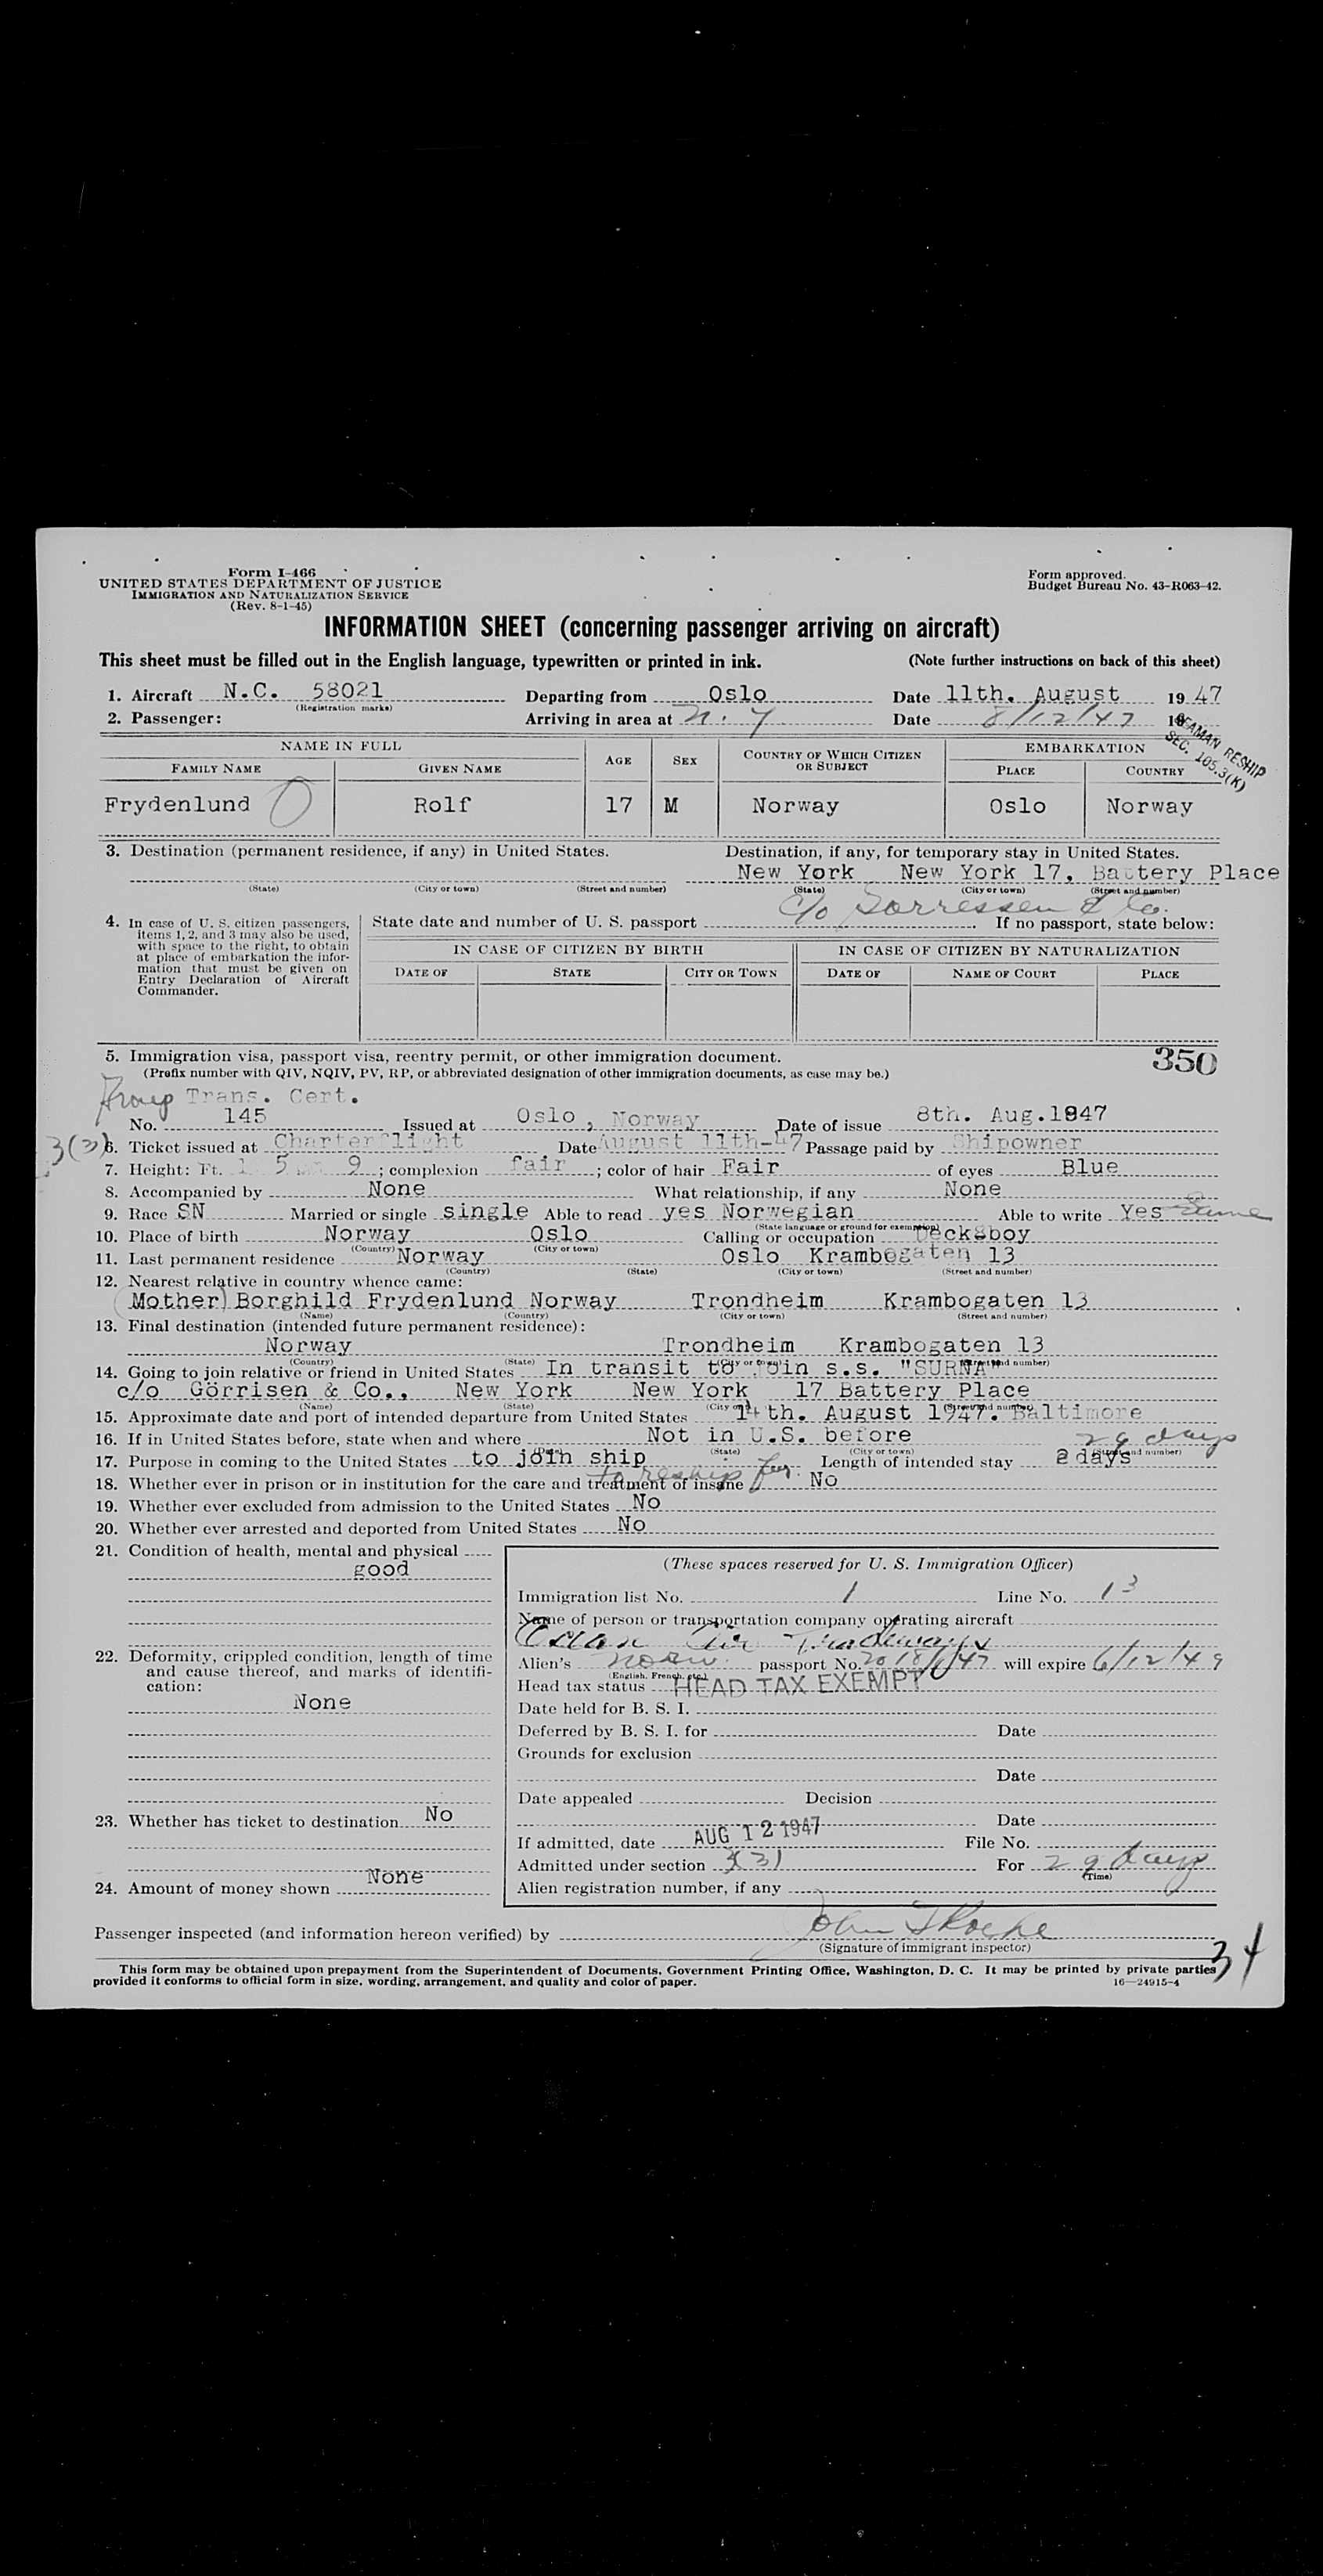 Form I-466
UNITED STATES DEPARTMENT OF JUSTICE
IMMIGRATION AND NATURALIZATION SERVICE
(Rev. 8-1-45)
Form approved.
Budget Bureau No. 43-R063-42.
INFORMATION SHEET (concerning passenger arriving on aircraft)
This sheet must be filled out in the English language, typewritten or printed in ink. (Note further instructions on back of this sheet)
1. Aircraft N.C. 58021 Departing from Oslo Date 11th. August 19 47
(Registration marks)
2. Passenger: Arriving in area at N. Y Date 8/12/47 19
SEAMAN RESHIP
SEC. 105.3(K)
NAME IN FULL AGE SEX COUNTRY OF WHICH CITIZEN OR SUBJECT EMBARKATION
FAMILY NAME GIVEN NAME PLACE COUNTRY
Frydenlund O Rolf 17 M Norway Oslo Norway
3. Destination (permanent residence, if any) in United States. Destination, if any, for temporary stay in United States.
New York New York 17, Battery Place
(State) (City or town) (Street and number) (State) (City or town) (Street and number)
c/o Gorressen & Co.
4. In case of U. S. citizen passengers, items 1, 2, and 3 may also be used, with space to the right, to obtain at place of embarkation the information that must be given on Entry Declaration of Aircraft Commander.
State date and number of U. S. passport If no passport, state below:
IN CASE OF CITIZEN BY BIRTH IN CASE OF CITIZEN BY NATURALIZATION
DATE OF STATE CITY OR TOWN DATE OF NAME OF COURT PLACE
5. Immigration visa, passport visa, reentry permit, or other immigration document. 350
(Prefix number with QIV, NQIV, PV, RP, or abbreviated designation of other immigration documents, as case may be.)
Group Trans. Cert.
No. 145 Issued at Oslo, Norway Date of issue 8th. Aug.1947
3(3) 6. Ticket issued at Charterflight Date August 11th-47 Passage paid by Shipowner
7. Height: Ft. 5 9 ; complexion fair ; color of hair Fair of eyes Blue
8. Accompanied by None What relationship, if any None
9. Race SN Married or single single Able to read yes Norwegian Able to write Yes same
(State language or ground for exemption)
10. Place of birth Norway Oslo Calling or occupation Decksboy
(Country) (City or town)
11. Last permanent residence Norway Oslo Krambogaten 13
(Country) (State) (City or town) (Street and number)
12. Nearest relative in country whence came:
(Mother) Borghild Frydenlund Norway Trondheim Krambogaten 13
(Name) (Country) (City or town) (Street and number)
13. Final destination (intended future permanent residence):
Norway Trondheim Krambogaten 13
(Country) (State) (City or town) (Street and number)
14. Going to join relative or friend in United States In transit to join s.s. "SURNA"
c/o Görrisen & Co., New York New York 17 Battery Place
(Name) (State) (City or town) (Street and number)
15. Approximate date and port of intended departure from United States 14 th. August 1947. Baltimore
16. If in United States before, state when and where Not in U.S. before
(Date) (State) (City or town) (Street and number)
29 days
17. Purpose in coming to the United States to join ship Length of intended stay 2 days
to reship for.
18. Whether ever in prison or in institution for the care and treatment of insane No
19. Whether ever excluded from admission to the United States No
20. Whether ever arrested and deported from United States No
21. Condition of health, mental and physical
good
22. Deformity, crippled condition, length of time and cause thereof, and marks of identification:
None
23. Whether has ticket to destination No
24. Amount of money shown None
(These spaces reserved for U. S. Immigration Officer)
Immigration list No. 1 Line No. 13
Name of person or transportation company operating aircraft
Air Tradeways
Alien's Norw. passport No. 2018/47 will expire 6/12/49
(English, French, etc.)
Head tax status HEAD TAX EXEMPT
Date held for B. S. I.
Deferred by B. S. I. for Date
Grounds for exclusion
Date
Date appealed Decision
Date
If admitted, date AUG 12 1947 File No.
Admitted under section 3(3) For 29 days
(Time)
Alien registration number, if any
Passenger inspected (and information hereon verified) by John Roche
(Signature of immigrant inspector)
34
This form may be obtained upon prepayment from the Superintendent of Documents, Government Printing Office, Washington, D. C. It may be printed by private parties
provided it conforms to official form in size, wording, arrangement, and quality and color of paper. 16—24915-4